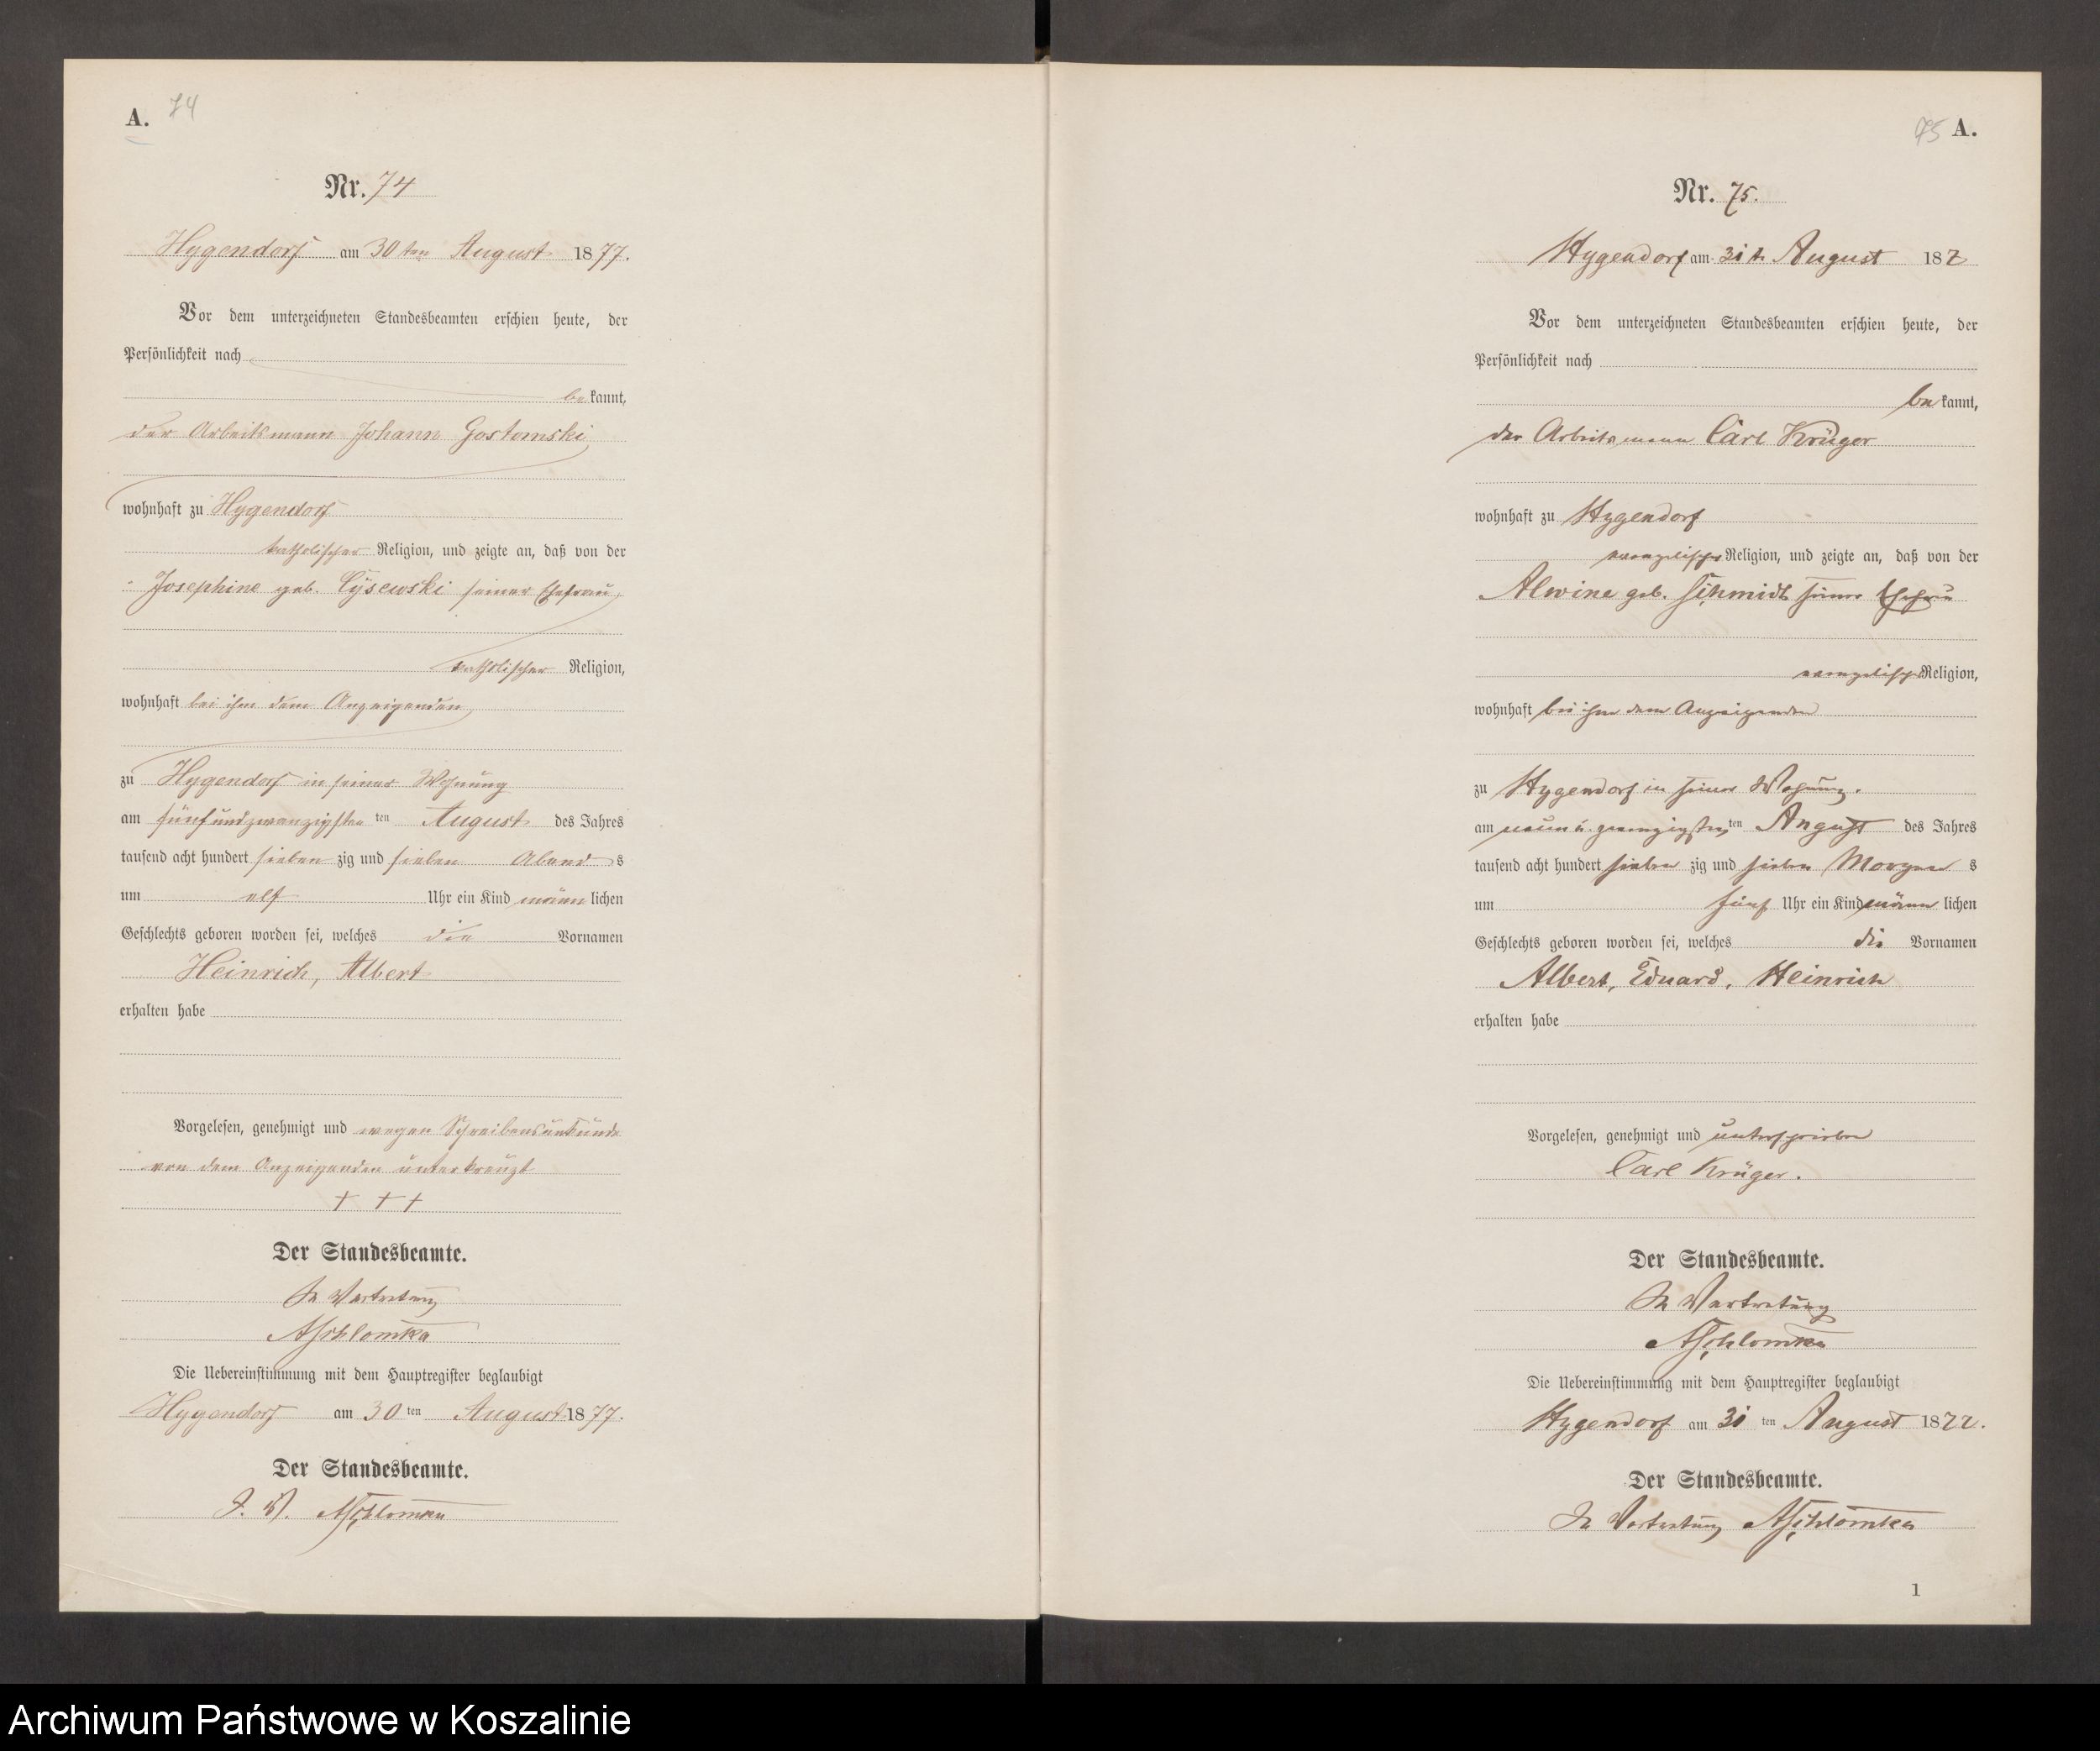 A. 74
Nr. 74
Hygendorf am 30ten August 1877.
Vor dem unterzeichneten Standesbeamten erschien heute, der
Persönlichkeit nach
bekannt,
der Arbeitsmann Johann Gostomski
wohnhaft zu Hygendorf
katholischer Religion, und zeigte an, daß von der
Josephine geb. Cysewski seiner Ehefrau
katholischer Religion,
wohnhaft bei ihm dem Anzeigenden
zu Hygendorf in seiner Wohnung
am fünfundzwanzigsten ten August des Jahres
tausend acht hundert siebenzig und sieben Abends
um elf Uhr ein Kind männlichen
Geschlechts geboren worden sei, welches die Vornamen
Heinrich, Albert
erhalten habe
Vorgelesen, genehmigt und wegen Schreibensunkunde
von dem Anzeigenden unterkreuzt
+ + +
Der Standesbeamte.
In Vertretung
ASchlomka
Die Uebereinstimmung mit dem Hauptregister beglaubigt
Hygendorf am 30ten August 1877.
Der Standesbeamte.
I. V. ASchlomka
75 A.
Nr. 75.
Hygendorf am 31t August 187
Vor dem unterzeichneten Standesbeamten erschien heute, der
Persönlichkeit nach
bekannt,
der Arbeitsmann Carl Krüger
wohnhaft zu Hygendorf
evangelischer Religion, und zeigte an, daß von der
Alwine geb. Schmidt seiner Ehefrau
evangelischer Religion,
wohnhaft bei ihm dem Anzeigenden
zu Hygendorf in seiner Wohnung.
am neun u. zwanzigsten ten August des Jahres
tausend acht hundert siebenzig und sieben Morgens
um fünf Uhr ein Kind männlichen
Geschlechts geboren worden sei, welches die Vornamen
Albert, Eduard, Heinrich
erhalten habe
Vorgelesen, genehmigt und unterschrieben
Carl Krüger.
Der Standesbeamte.
In Vertretung
ASchlomka
Die Uebereinstimmung mit dem Hauptregister beglaubigt
Hygendorf am 31 ten August 1877.
Der Standesbeamte.
In Vertretung ASchlomka
1
Archiwum Państwowe w Koszalinie